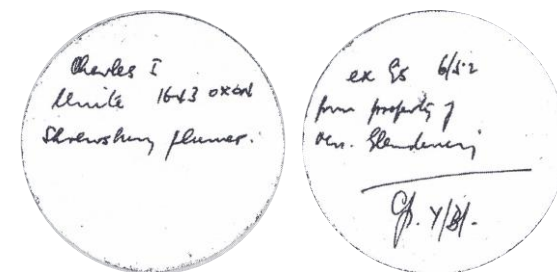 Charles I
Unite 1643 oxon
Shrewsbury plumes.
ex Gs 6/52
from property of
Mrs. Glendening